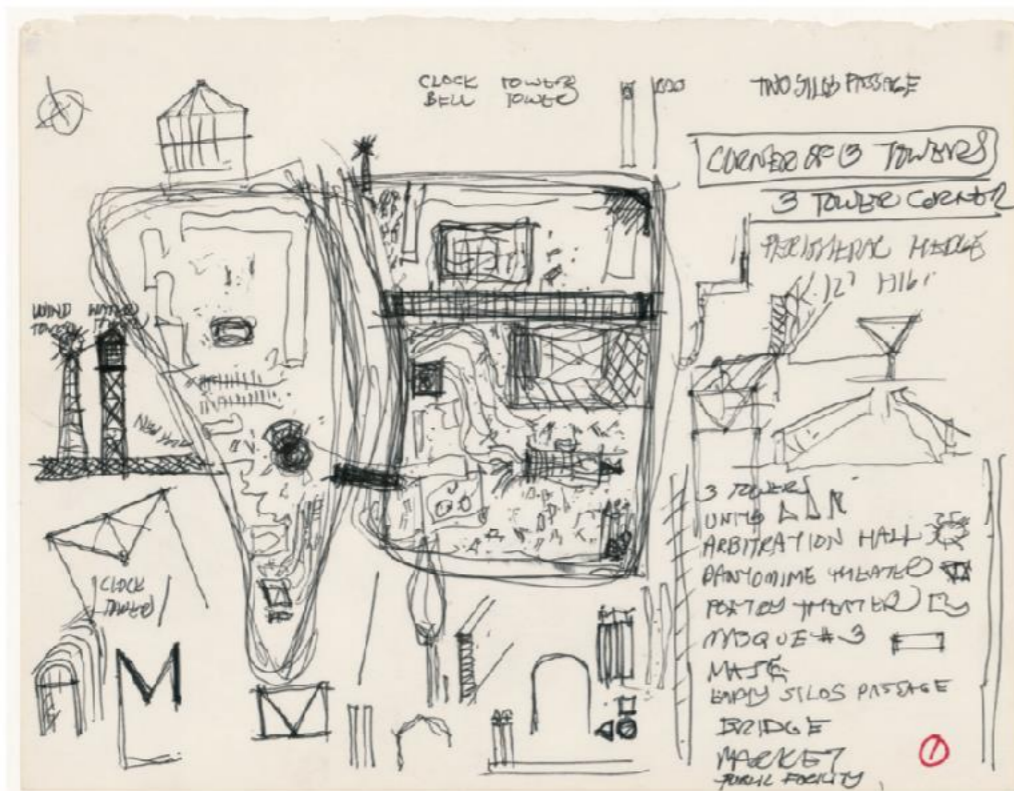 CLOCK TOWER
BELL TOWER
TWO SILOS PASSAGE
CORNER OF 3 TOWERS
3 TOWER CORNER
PERIPHERAL HEDGE
12' HIGH
WIND TOWER
WATER
CLOCK
TOWER
3 TOWERS
UNITS
ARBITRATION HALL
PANTOMIME THEATER
POETRY THEATER
MOSQUE #3
MAZE
EMPTY SILOS PASSAGE
BRIDGE
MARKET
PUBLIC FACILITY
1